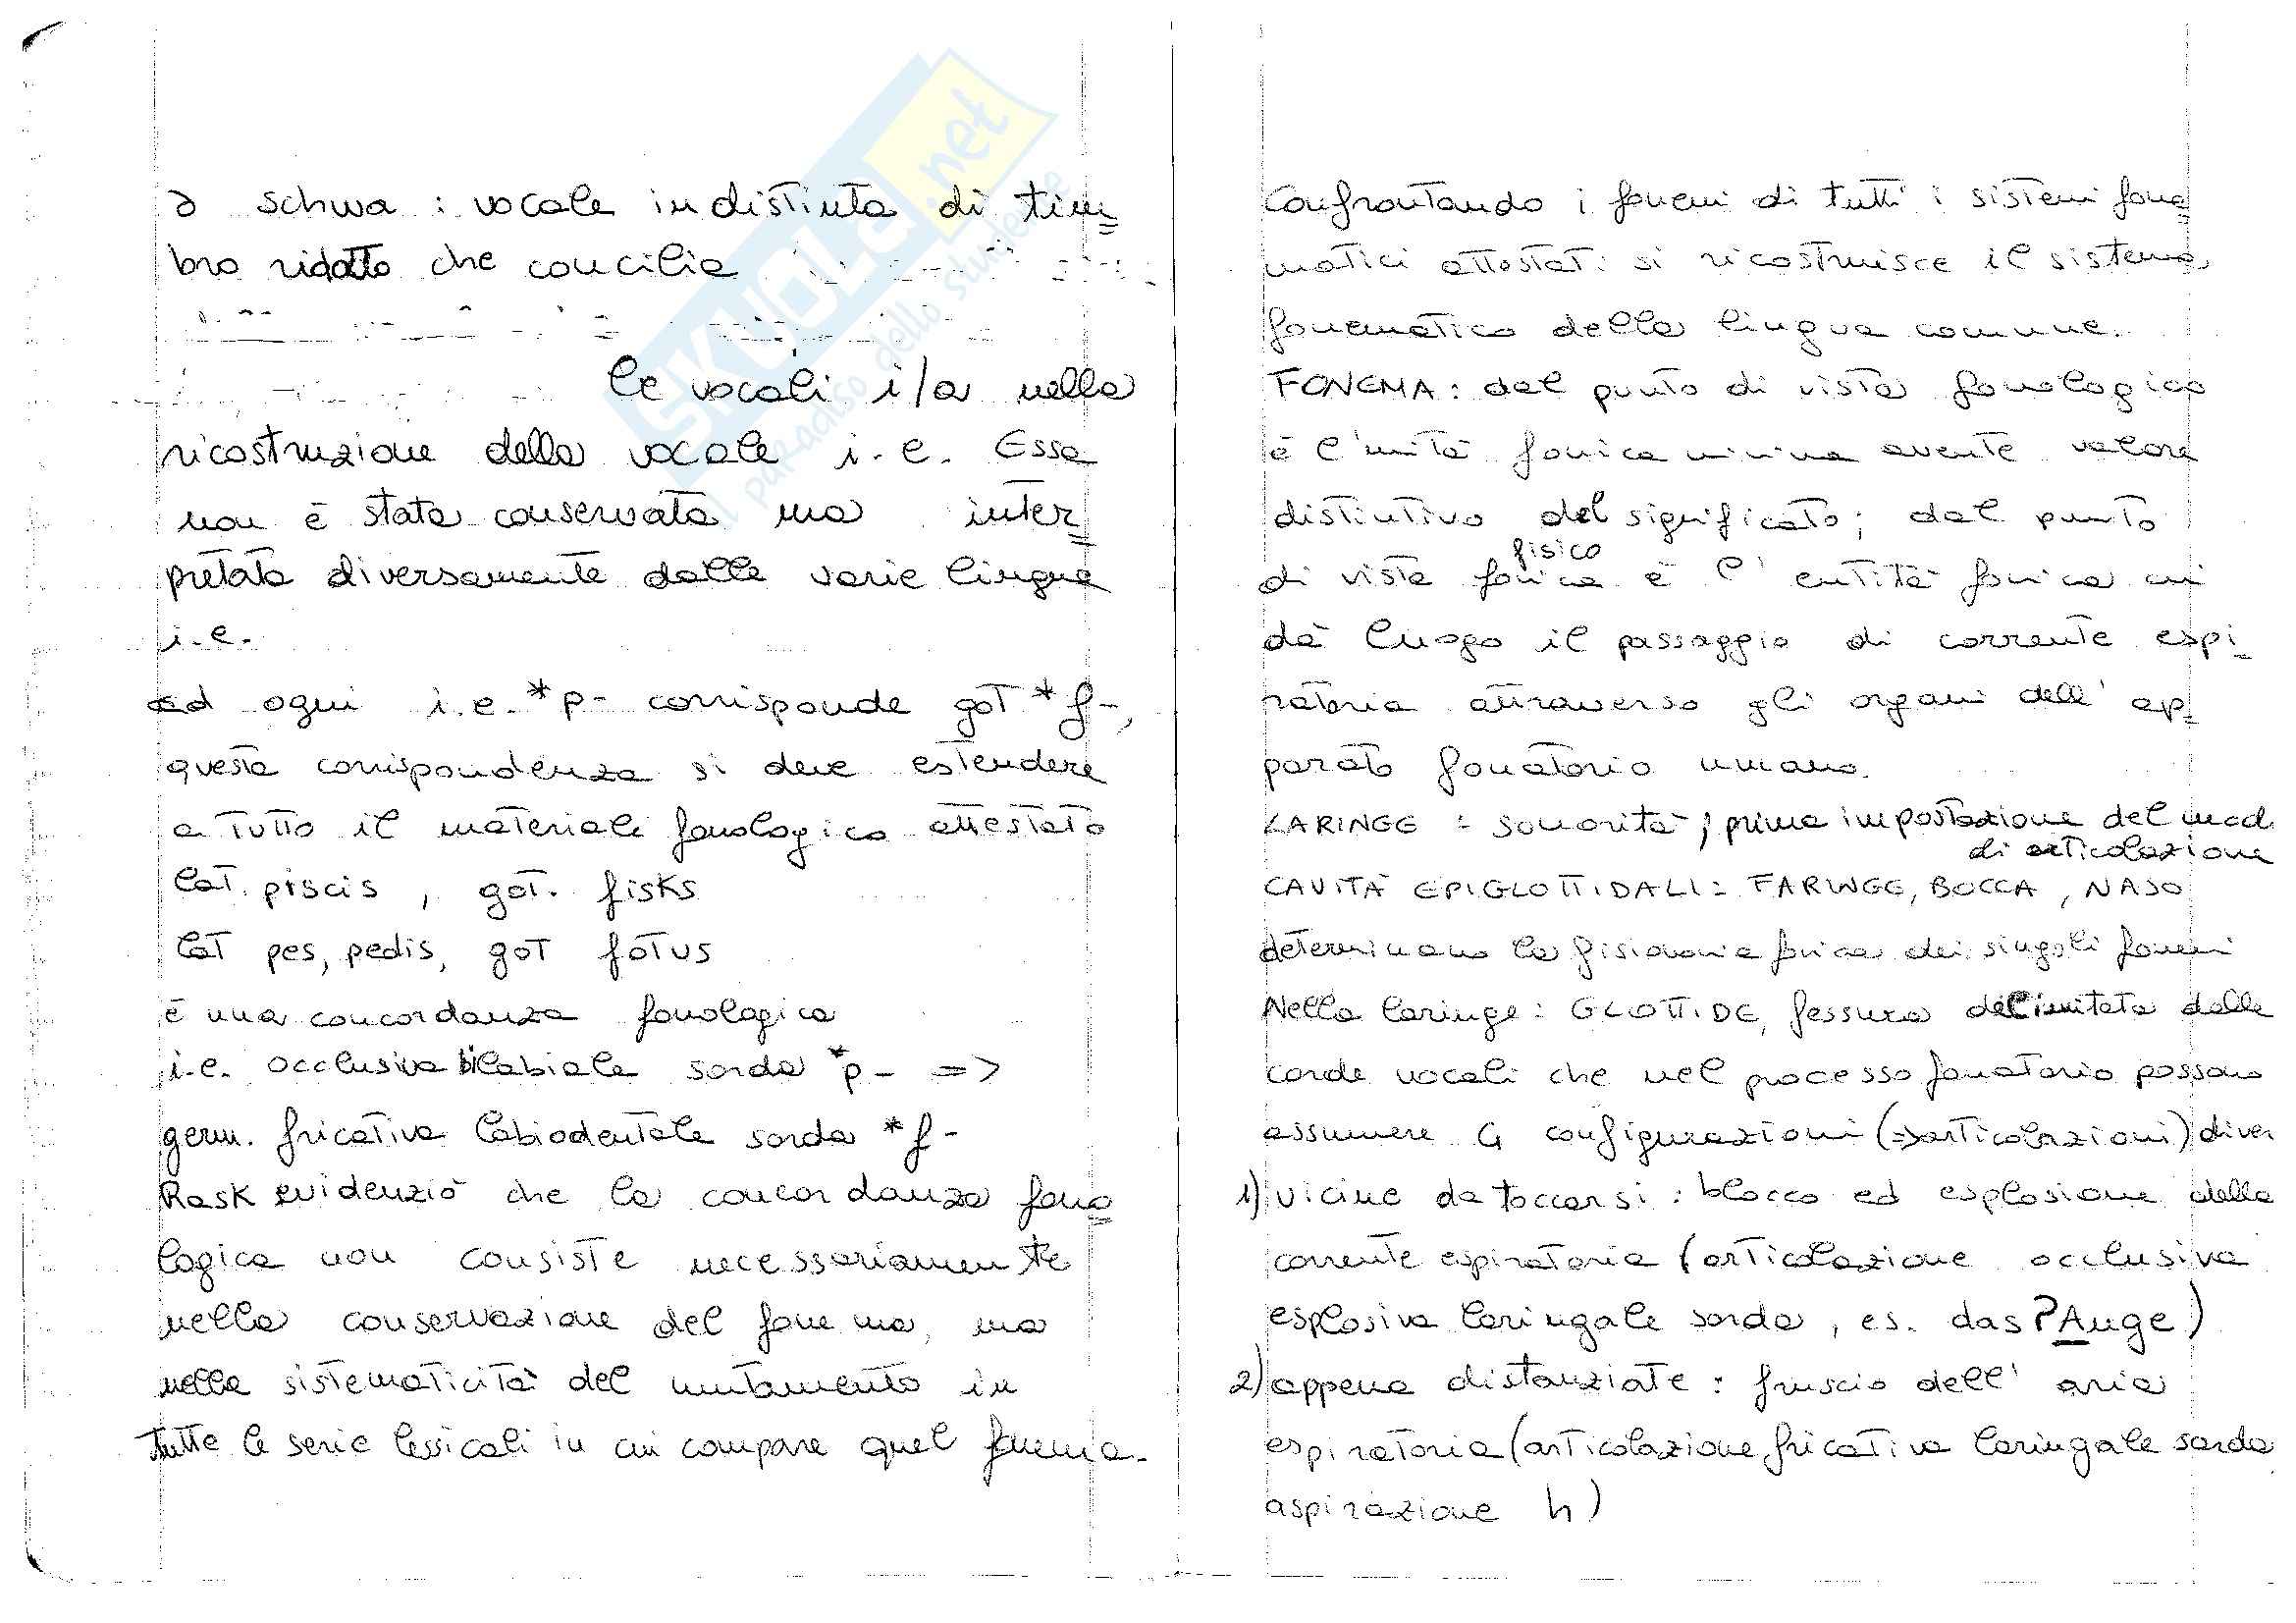 ə schwa : vocale indistinta di tim=
bro ridotto che concilia
le vocali i/a nella
ricostruzione della vocale i.e. Essa
non è stata conservata ma inter=
pretata diversamente dalle varie lingue
i.e.
ad ogni i.e. *p- corrisponde got *f-,
questa corrispondenza si deve estendere
a tutto il materiale fonologico attestato
lat. piscis, got. fisks
lat pes, pedis, got fotus
è una concordanza fonologica
i.e. occlusiva bilabiale sorda *p- =>
germ. fricativa labiodentale sorda *f-
Rask evidenziò che la concordanza fono=
logica non consiste necessariamente
nella conservazione del fonema, ma
nella sistematicità del mutamento in
tutte le serie lessicali in cui compare quel fonema.
Confrontando i fonemi di tutti i sistemi fone=
matici attestati si ricostruisce il sistema
fonematico della lingua comune.
FONEMA: dal punto di vista fonologico
è l'unità fonica minima avente valore
distintivo del significato; dal punto
di vista fonico fisico è l'entità fonica cui
dà luogo il passaggio di corrente espi=
ratoria attraverso gli organi dell'ap=
parato fonatorio umano.
LARINGE = sonorità, prima impostazione del mod.
di articolazione
CAVITÀ EPIGLOTTIDALI = FARINGE, BOCCA, NASO
determinano la fisionomia fonica dei singoli fonemi
Nella laringe: GLOTTIDE, fessura delimitata dalle
corde vocali che nel processo fonatorio possono
assumere 4 configurazioni (=>articolazioni) diver
1) vicine da toccarsi : blocco ed esplosione della
corrente espiratoria (articolazione occlusiva
esplosiva laringale sorda, es. das ʔAuge)
2) appena distanziate : fruscio dell'aria
espiratoria (articolazione fricativa laringale sorda
aspirazione h)
SKUOLA.net
il paradiso dello studente